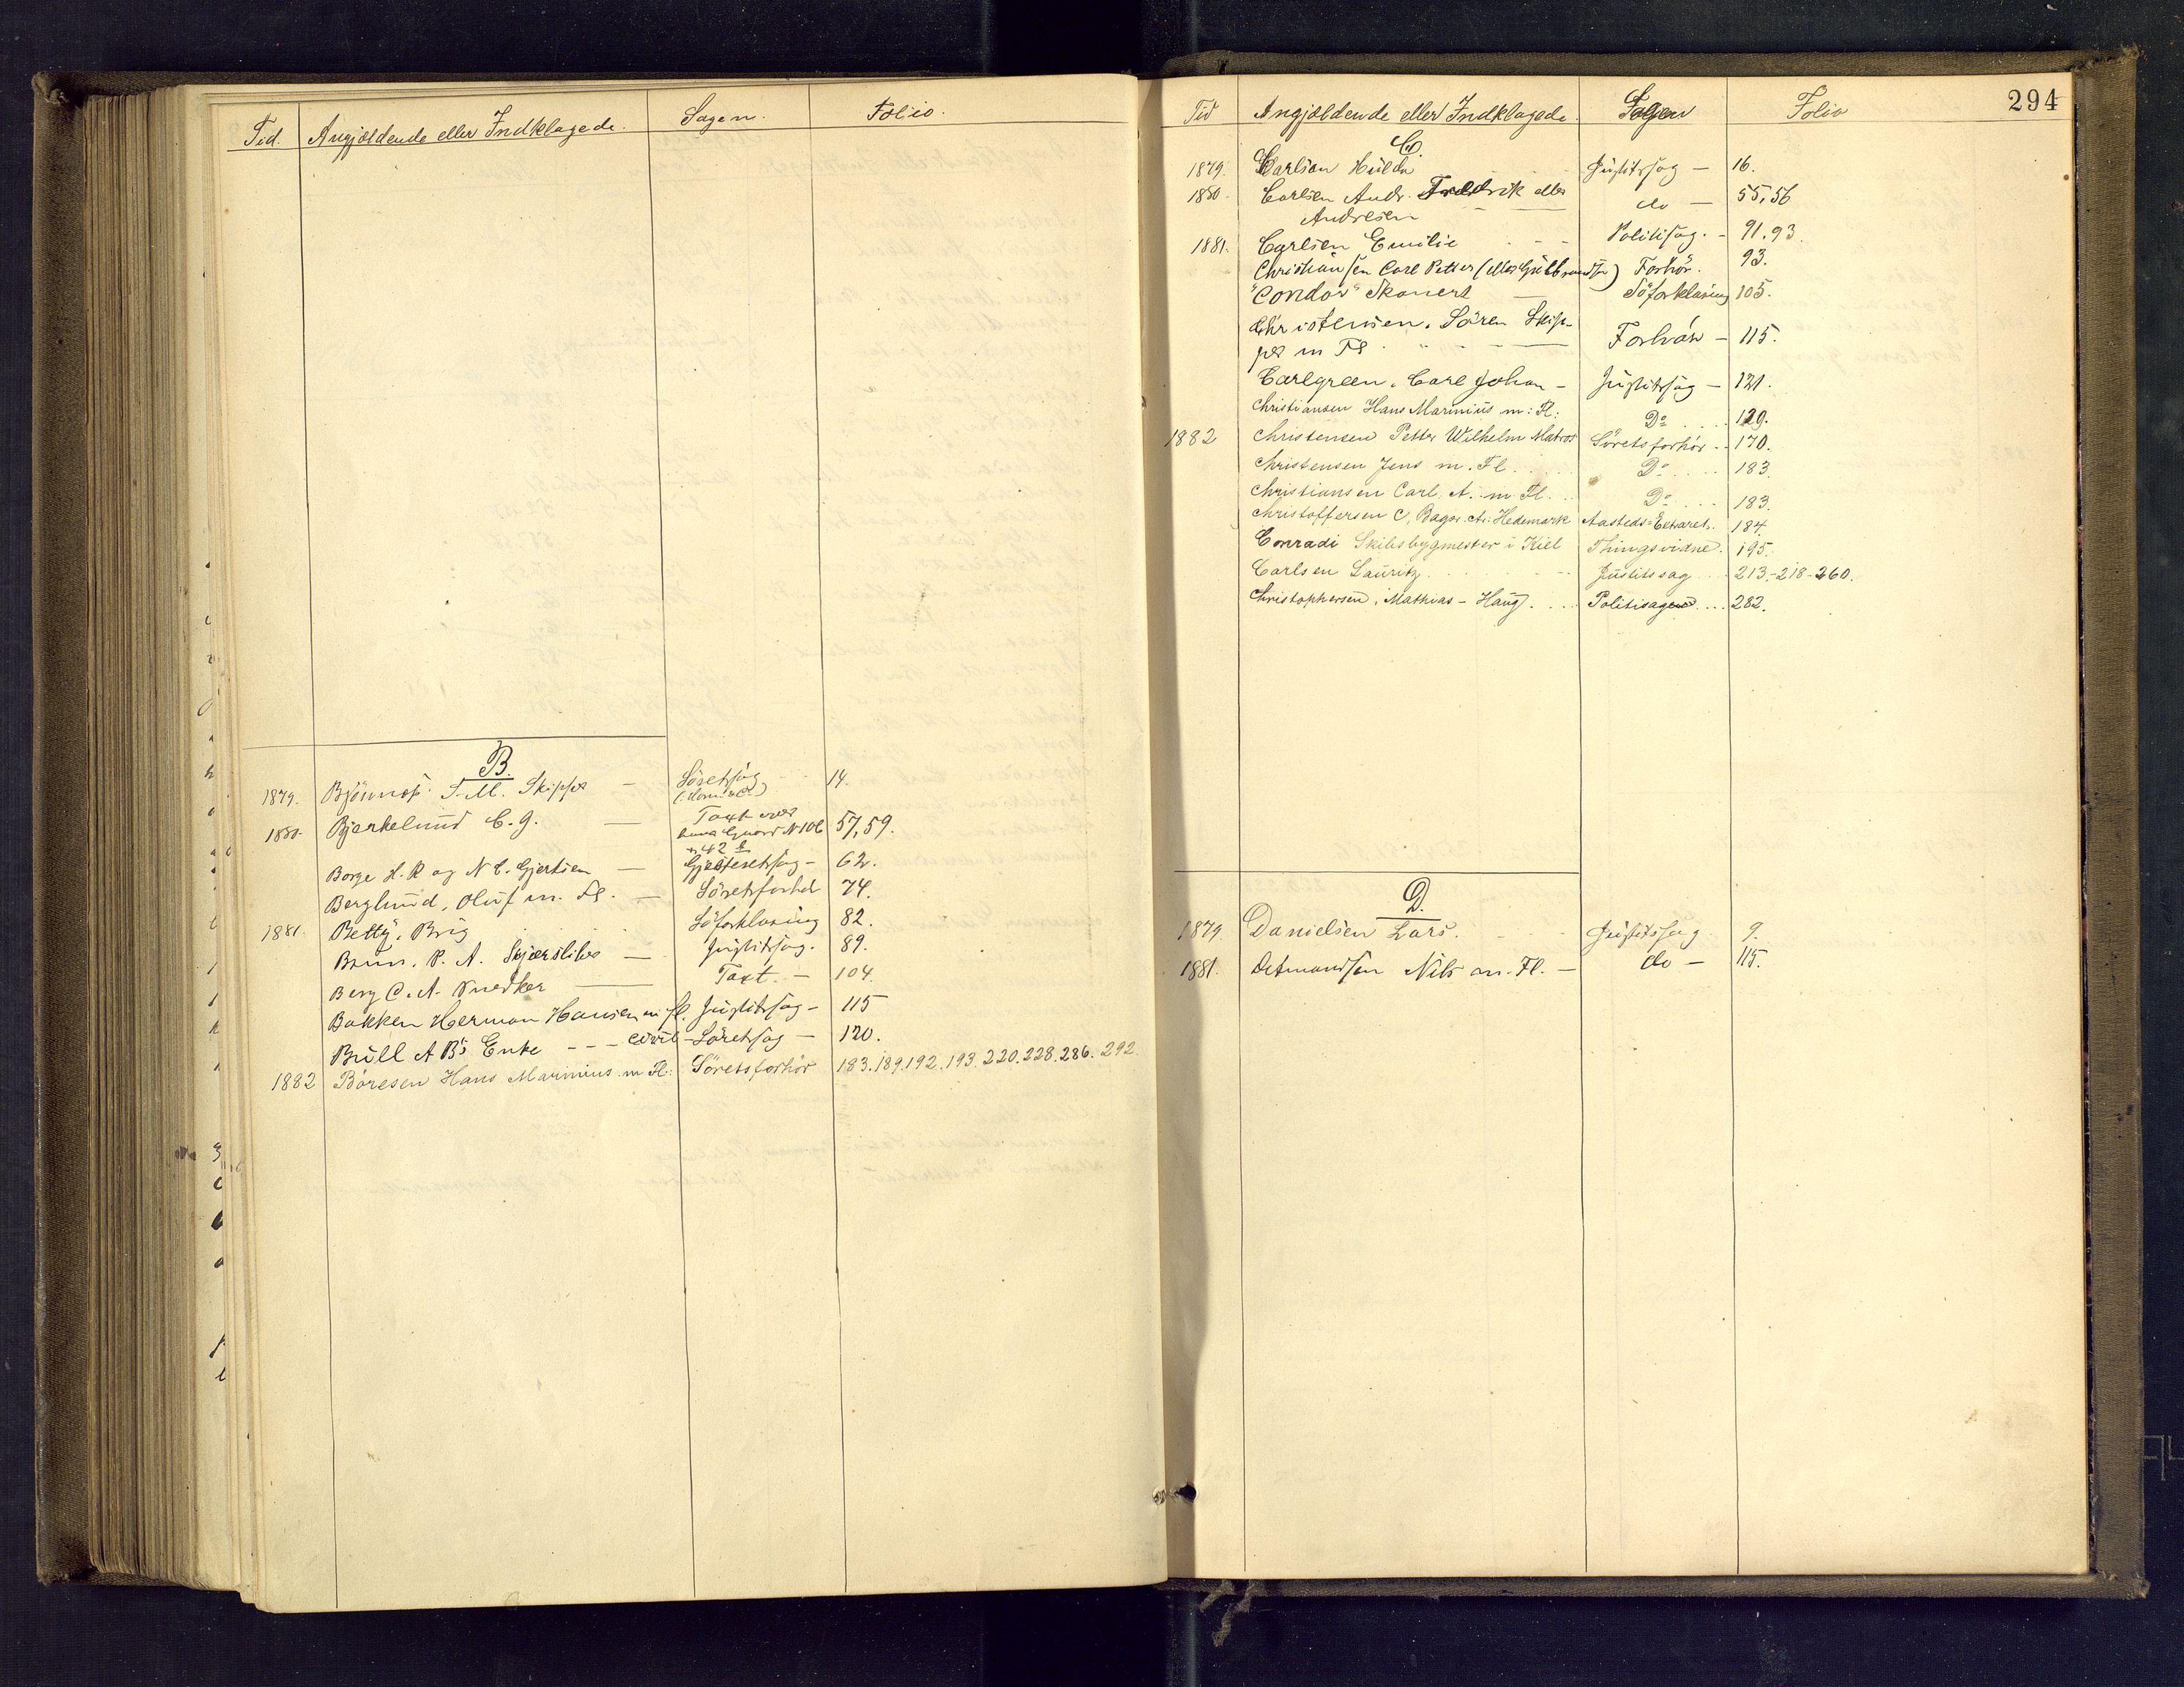 Tid. Angjældende eller Indklagede. Sagen. Folio.
B.
1879. S. M. Skipper — Söretssag 14.
1880. Bjerkelund C. G. — Taxt over 57, 59.
Borge H. R og N C. Gjertsen — Gjæsteretssag — 62.
Berglund, Oluf m. Fl. — Söretsforhör 74.
1881. Betty, Brig Söforklaring 82.
Brun. P. A. — Justitssag. 89.
Berg C. A. Snedker — Taxt. — 104.
Bakken Herman Hansen m fl. Justitssag — 115
Bull A B's Enke — — — civil — Söretssag — 120.
1882 Böresen Hans Marinius m Fl: Söretsforhör 183. 189. 192. 193. 220. 228. 286. 292.
294
Tid Angjældende eller Indklagede. Sagen Folio
C.
1879. Carlsen Hulda Justitssag — 16.
1880. Carlsen Andr. Fredrik eller do — 55, 56
Andresen
1881. Carlsen Emilie Politisag. — 91. 93.
Christiansen Carl Petter (eller Gulbrandsen) Forhör. 93.
"Condor" Skonert — Söforklaring 105.
Christensen. Sören Skip-
per m Fl — Forhör — 115.
Carlgreen. Carl Johan — Justitssag — 121.
Christiansen Hans Marinius m: Fl: Do 129.
1882 Christensen Petter Wilhelm Matros Söretsforhör 170.
Christensen Jens m. Fl. Do 183.
Christiansen Carl. A. m. Fl. Do 183.
Christoffersen C, Bager. A: Hedemark Aasteds-Extraret. 184.
Conradi Skibsbygmester i Kiel Thingsvidne. 195.
Carlsen Lauritz Justitssag 213.-218-260.
Christophersen, Mathias - Haug. Politisagen 282.
D.
1879. Danielsen Lars. Justitssag 9.
1881. Detmandsen Nils m. Fl. — do — 115.